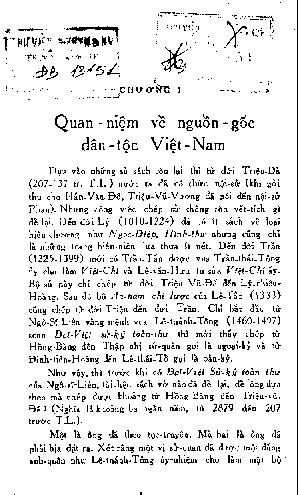 ĐB 13151
CHƯƠNG I
Quan-niệm về nguồn-gốc
dân-tộc Việt-Nam
Dựa vào những sử sách còn lại thì từ đời Triệu-Đà
(207-137 tr. T.L.) nước ta đã có chức nội-sử (khi gởi
thư cho Hán-Văn-Đế, Triệu-Vũ-Vương đã nói đến nội-sử
Phan). Nhưng công việc chép sử không còn vết-tích gì
để lại. Đến đời Lý (1010-1224) đã có ít sách về loại
như Ngọc-Điệp, nhưng cũng chỉ
là những trang biên-niên lưa thưa ít nét. Đến đời Trần
(1225-1399) mới có Trần-Tấn được vua Trần-thái-Tông
ủy cho làm Việt-Chí và Lê-văn-Hưu tu sửa Việt-Chí ấy.
Bộ sử này chỉ chép từ đời Triệu Vũ-Đế đến Lý-chiêu-
Hoàng. Sau đó bộ An-nam chí lược của Lê-Tắc (1333)
cũng chép từ đời Triệu đến đời Trần. Chỉ bắt đầu từ
Ngô-Sĩ-Liên vâng mệnh vua Lê-thánh-Tông (1460-1497)
soạn Đại-Việt sử-ký toàn-thư thì mới thấy chép từ
Hồng-Bàng đến Thập nhị sứ-quân gọi là ngoại-kỷ và từ
Đinh-tiên-Hoàng đến Lê-thái-Tổ gọi là bản-kỷ.
Như vậy, thì trước khi có Đại-Việt Sử-ký toàn thư
của Ngô-sĩ-Liên, lai-lịch sách vở nào đã để lại, để ông dựa
theo mà chép được Hoàng từ Hồng Bàng đến Triệu-vũ-
Đế? (Nghĩa là khoảng ba ngàn năm, từ 2879 đến 207
trước T.L.).
Một là ông đã theo tục-truyền. Mà hai là ông đã
phải bịa đặt ra. Xét rằng một vị sử-quan đã được một đấng
anh-quân như Lê-thánh-Tông ủy-nhiệm cho làm một bộ